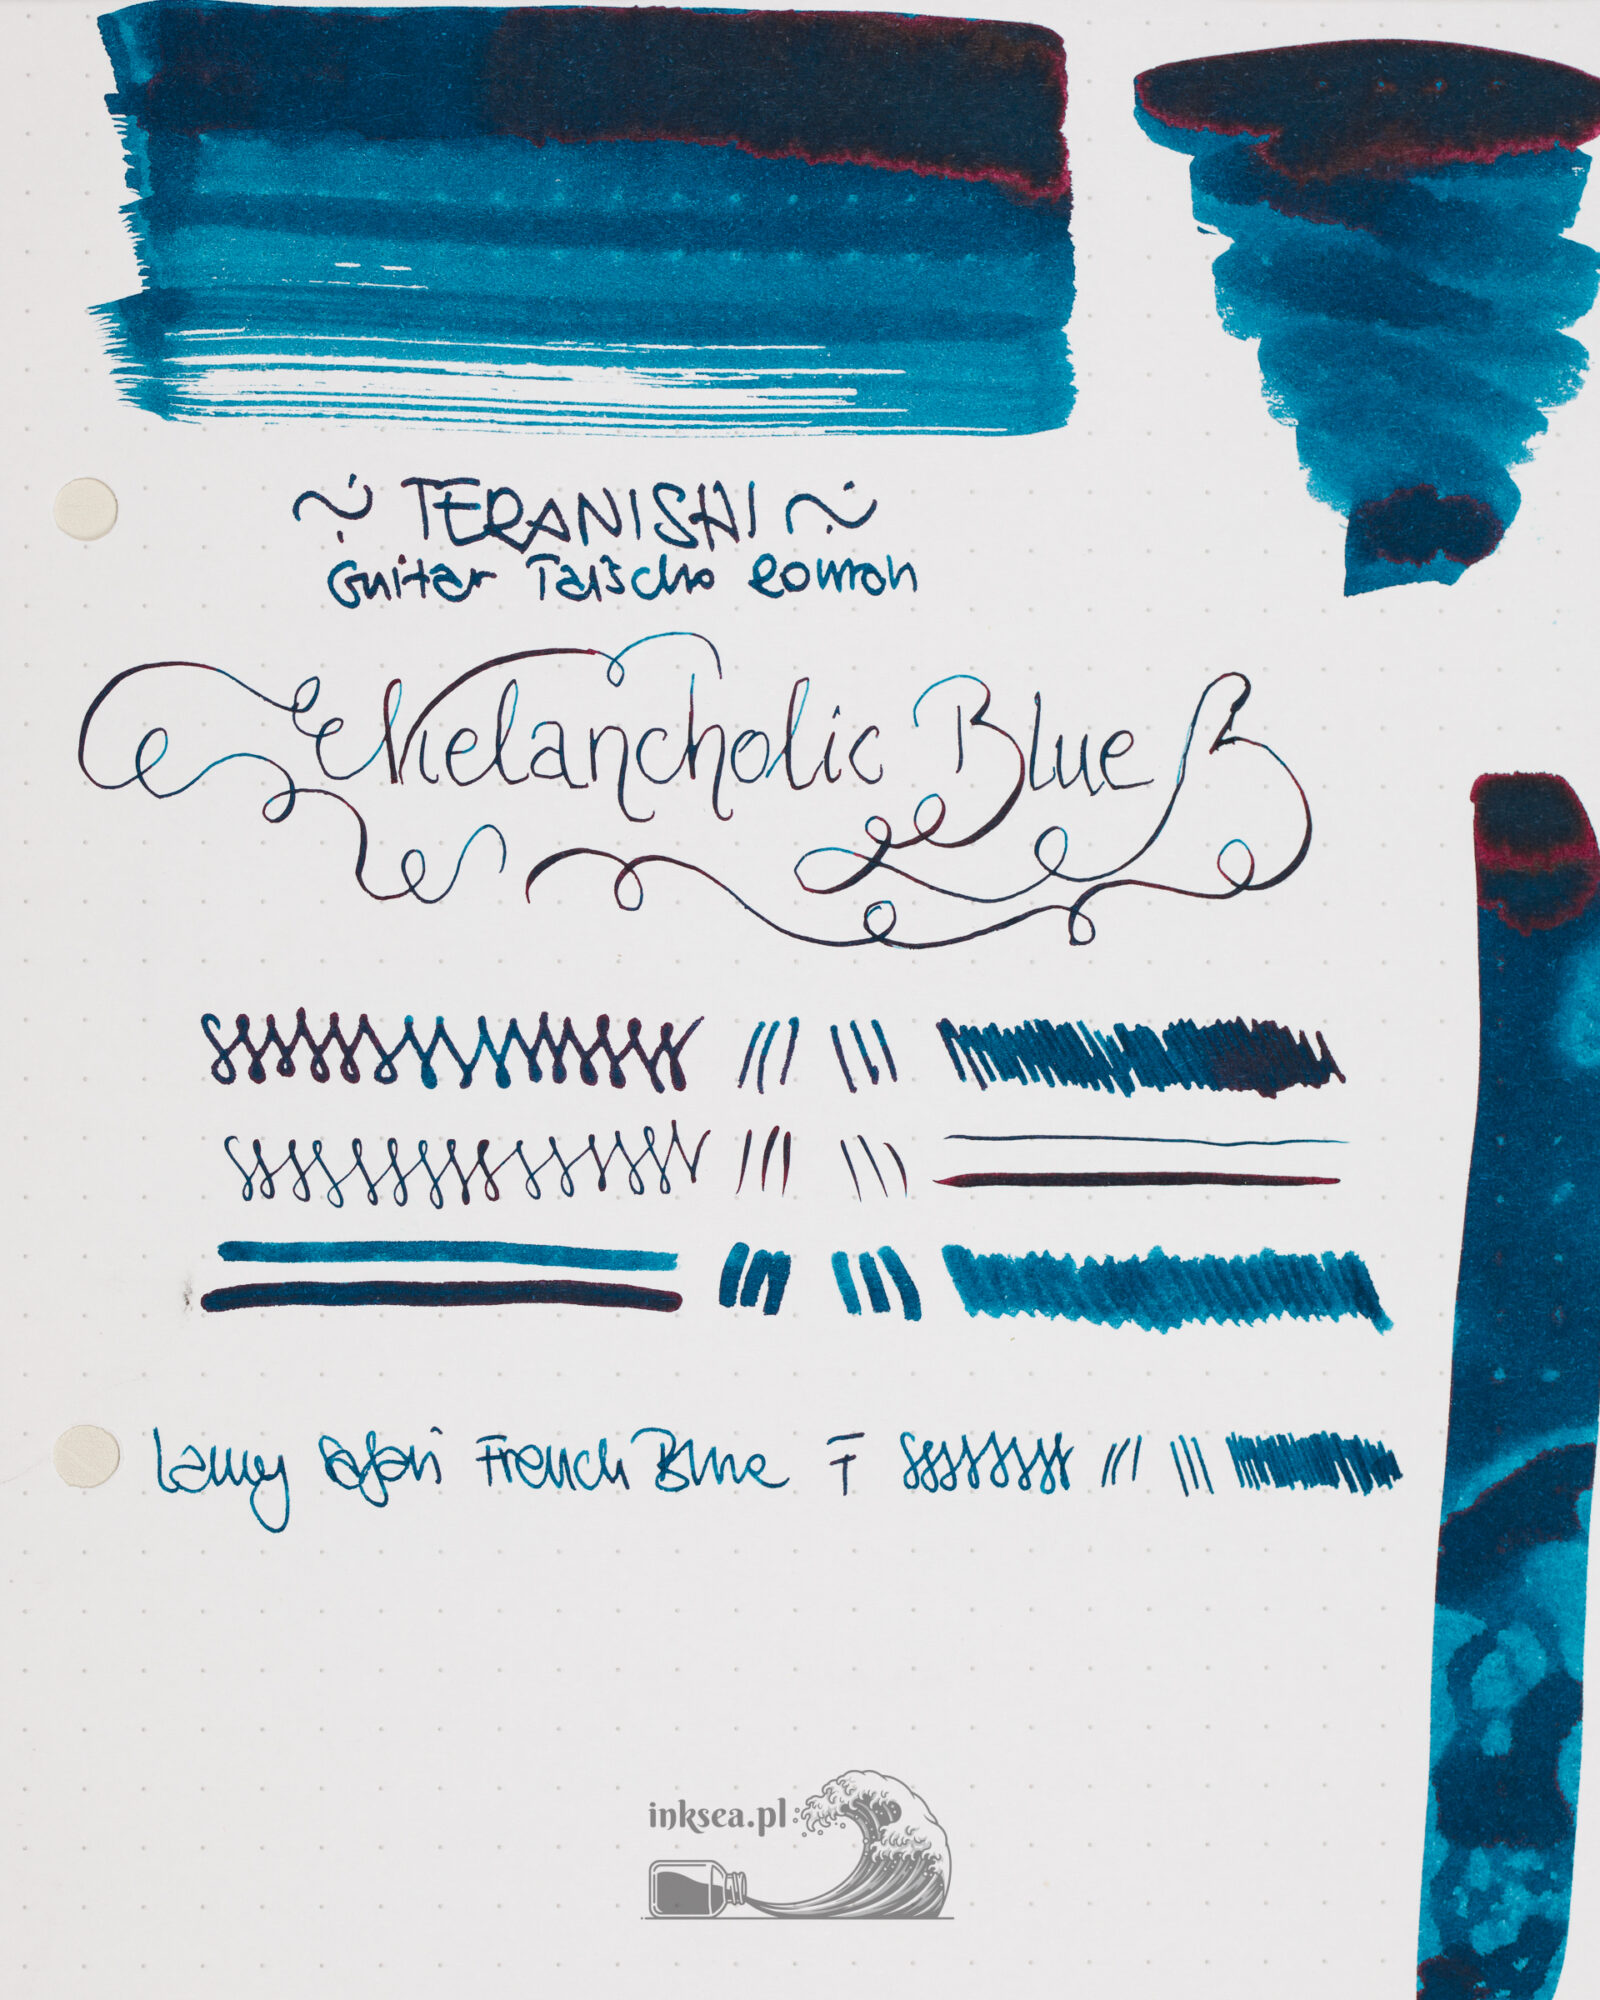 ~ TERANISHI ~
Guitar Taischo Roman
Melancholic Blue
Lamy Safari French Blue F
inksea.pl